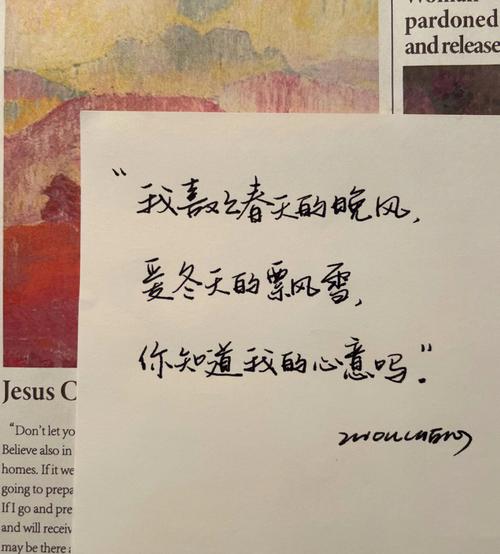 Woman
pardoned
and release
"我喜欢春天的晚风,
爱冬天的飘风雪,
你知道我的心意吗."
ZHOUCHENG
Jesus C
"Don't let yo
Believe also in
homes. If it we
going to prepa
If I go and pre
and will receiv
may be there a